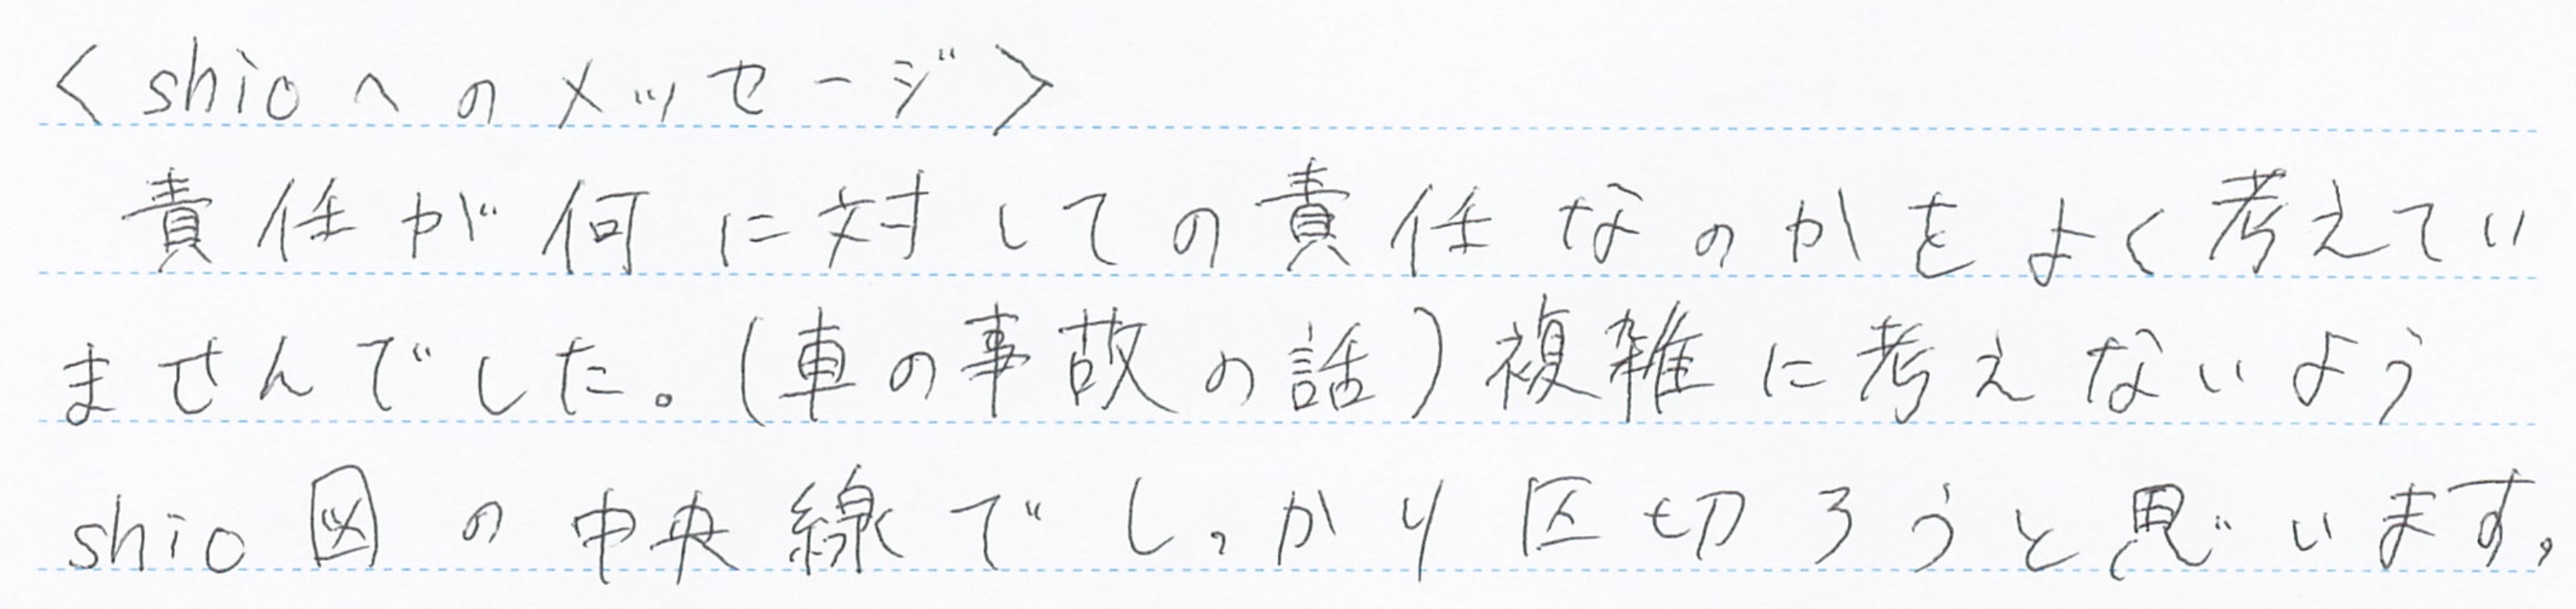 <shioへのメッセージ>
責任が何に対しての責任なのかをよく考えてい
ませんでした。(車の事故の話)複雑に考えないよう
shio図の中央線でしっかり区切ろうと思います。